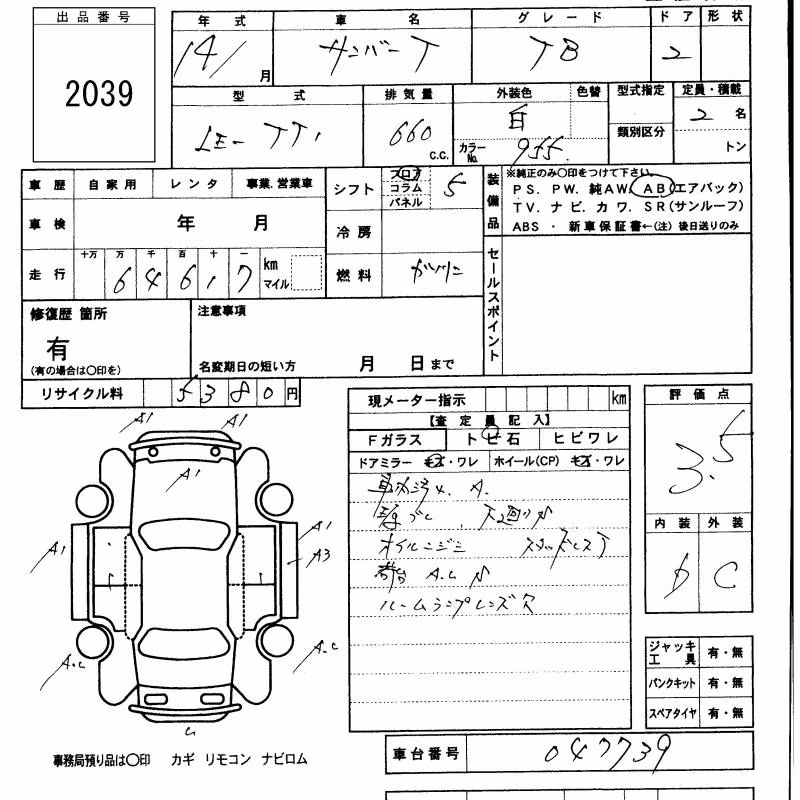 出品番号
2039
年式 車名 グレード ドア 形状
14/ 月 サンバーT TB 2
型式 排気量 外装色 色替 型式指定 定員・積載
LE-TT1 660 c.c. 白 カラーNo. 955 類別区分 2 名
トン
車歴 自家用 レンタ 事業.営業車
シフト フロア コラム パネル 5
装備品
※純正のみ〇印をつけて下さい
PS. PW. 純AW. AB(エアバック)
TV. ナビ. カワ. SR(サンルーフ)
ABS ・ 新車保証書←(注) 後日送りのみ
車検 年 月
冷房
走行 十万 万 千 百 十 一
6 4 6 1 7 km マイル
燃料 ガソリン
セールスポイント
修復歴 箇所
有
(有の場合は〇印を)
注意事項
名変期日の短い方 月 日まで
リサイクル料 5 3 8 0 円
現メーター指示 km
【査定員記入】
Fガラス トビ石 ヒビワレ
ドアミラー キズ・ワレ ホイール(CP) キズ・ワレ
車内汚れ. A.
下回りサ
オイルニジミ スタッドレスT
荷台 A.C サ
ルームランプレンズ欠
評価点
3.5
内装 外装
D C
ジャッキ工具 有・無
パンクキット 有・無
スペアタイヤ 有・無
A1
A1
A1
A1
A1
A3
A.C
A.C
事務局預り品は〇印 カギ リモコン ナビロム
車台番号 047739